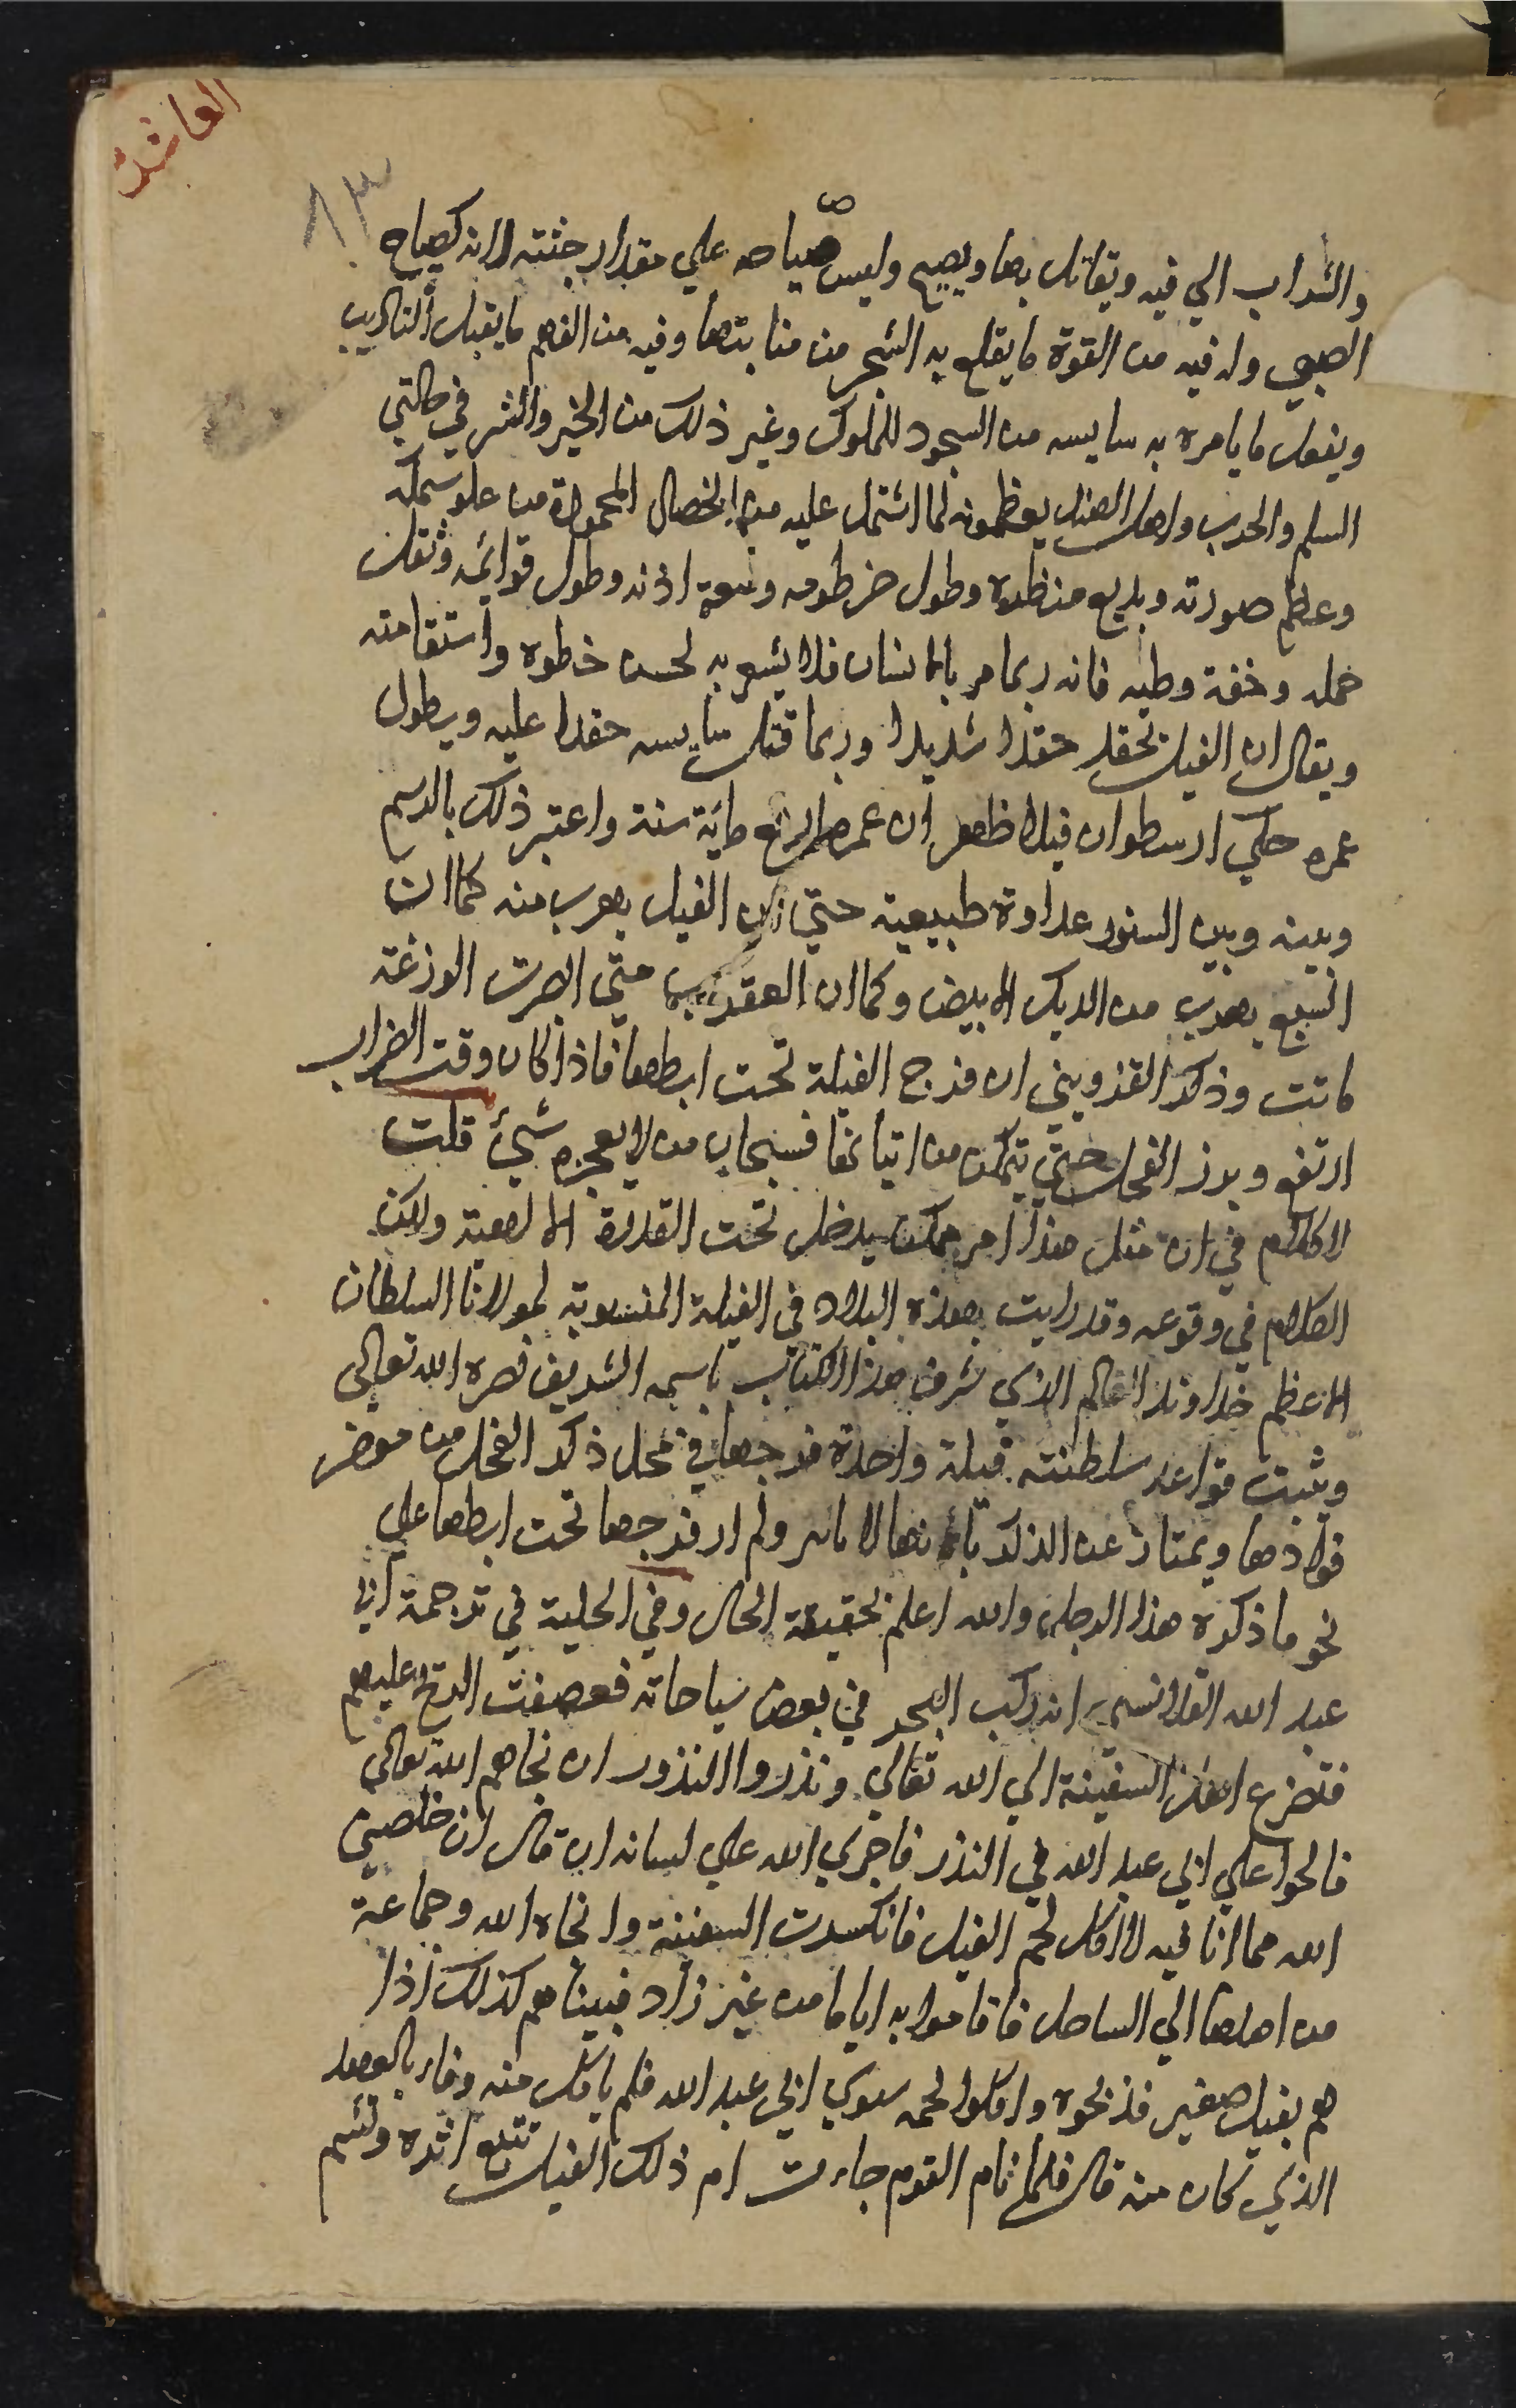 العاشر
٨٣
والشراب الي فيه ويقاتل بها ويصيح وليس صياحه علي مقدار جثته لانه كصياح
الصبي وله فيه من القوة ما يقلع به الشجر من منابتها وفيه من الفهم ما يقبل التاديب
ويفعل ما يامره به سايسه من السجود للملوك وغير ذلك من الخير والشر في حالتي
السلم والحرب واهل الهند يعظمونه لما اشتمل عليه من الخصال المحمودة من علو سمكه
وعظم صورته وبديع منظره وطول خرطومه وسعة اذنه وطول قوائمه وثقل
حمله وخفة وطيه فانه ربما مر بالانسان فلا يشعر به لحسن خطوه واستقامته
ويقال ان الفيل يحقد حقدا شديدا وربما قتل سايسه حقدا عليه ويطول
عمره حكي ارسطو ان فيلا ظهر ان عمره اربع مائة سنة واعتبر ذلك بالوسم
وبينه وبين السنور عداوة طبيعية حتي ان الفيل يهرب منه كما ان
السبع يهرب من الديك الابيض وكما ان العقرب متي ابصرت الوزغة
ماتت وذكر القزويني ان فرج الفيلة تحت ابطها فاذا كان وقت الضراب
ارتفع وبرز الفحل حتي يتمكن من اتيانها فسبحان من لا يعجزه شيئ قلت
لا كلام في ان مثل هذا امر ممكن يدخل تحت القدرة الالهية ولكن
الكلام في وقوعه وقد رايت بهذه البلاد في الفيلة المنسوبة لمولانا السلطان
الاعظم خداوند العالم الذي شرف هذا الكتاب باسمه الشريف نصره الله تعالى
وثبت قواعد سلطنته فيلة واحدة فرجها في محل ذكر الفحل من موخر
فخاذها ويمتاز عن الذكر بانها لا ناب ولم ار فرجها تحت ابطها علي
نحو ما ذكره هذا الرجل والله اعلم بحقيقة الحال وفي الحلية في ترجمة ابي
عبد الله القلانسي انه ركب البحر في بعض سياحاته فعصفت الريح عليهم
فتضرع اهل السفينة الي الله تعالي ونذروا النذور ان نجاهم الله تعالي
فالحوا علي ابي عبد الله في النذر فاجري الله علي لسانه ان قال ان خلصني
الله مما انا فيه لا آكل لحم الفيل فانكسرت السفينة وانجاه الله وجماعة
من اهلها الي الساحل فاقاموا به اياما من غير زاد فبينما هم كذلك اذا
هم بفيل صغير فذبحوه واكلوا لحمه سوي ابي عبد الله فلم ياكل منه وفاء بالعهد
الذي كان منه قال فلما نام القوم جاءت ام ذلك الفيل تتبع اثره وتشم